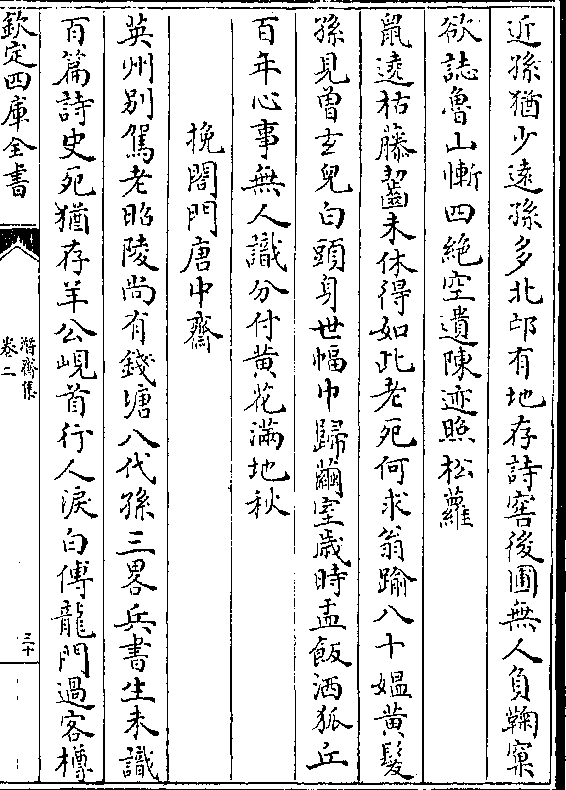 近孫猶少遠孫多北邙有地存詩窖後圃無人負鞠窠
欲誌魯山慚四絶空遺陳迹照松蘿
鼠遶枯藤齧未休得如此老死何求翁踰八十媪黄髮
孫見曾玄兒白頭身世幅巾歸繭室歲時盂飯洒狐丘
百年心事無人識分付黄花滿地秋
挽閤門唐中齋
英州别駕老昭陵尚有錢塘八代孫三畧兵書生未識
百篇詩史死猶存羊公峴首行人淚白傅龍門過客樽
欽定四庫全書
潛齋集
卷二
三十